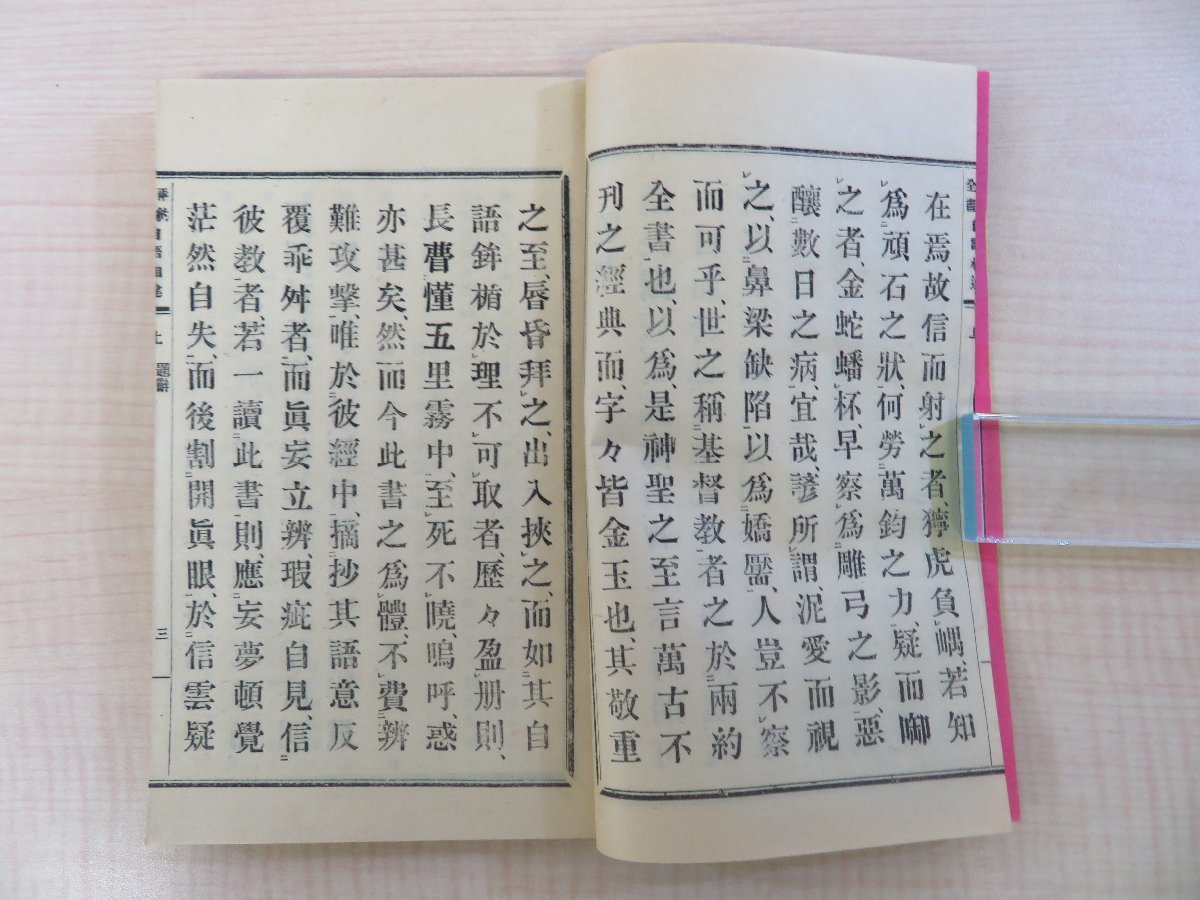 在焉、故信而射之者、獰虎負嵎、若知
爲頑石之狀、何勞萬鈞之力、疑而啣
之者、金蛇蟠杯、早察爲雕弓之影、惡
釀數日之病、宜哉、諺所謂、泥愛而視
之、以鼻梁缺陷以爲嬌靨、人豈不察
而可乎、世之稱基督教者之於兩約
全書也、以爲、是神聖之至言萬古不
刊之經典而、字々皆金玉也、其敬重
之至、唇昏拜之、出入挾之、而如其自
語鉾楯於理不可取者、歷々盈册則、
長瞢懂五里霧中、至死不曉、嗚呼、惑
亦甚矣、然而今此書之爲體、不費辨
難攻擊、唯於彼經中、摘抄其語意反
覆乖舛者、而眞妄立辨、瑕疵自見、信
彼教者、若一讀此書則、應妄夢頓覺
茫然自失、而後割開眞眼、於信雲疑
上 題辭
三